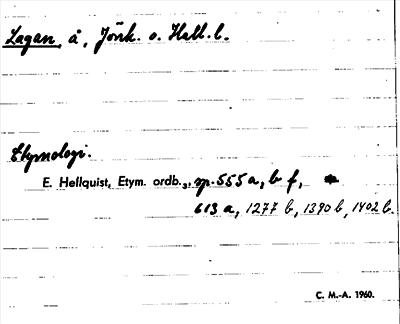 Lagan, å, Jönk. o. Hall. l.
Etymologi.
E. Hellquist, Etym. ordb.₃, sp. 555 a, b f,
613 a, 1277 b, 1390 b, 1402 b.
C. M.-A. 1960.